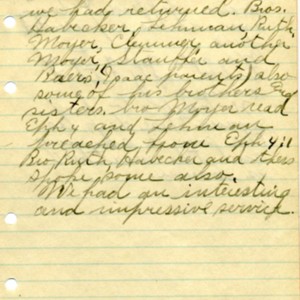 we had returned. Bros.
Habecker, Lehman, Ruth,
Moyer, Clemmer, another
Moyer, Stauffer and
Baers, Isaac parents, also
some of his brothers and
sisters. Bro Moyer read
Eph 4 and Lehman
preached from Eph 4:1
Bro Ruth, Habecker and Baers
spoke some also.
We had an interesting
and impressive service.